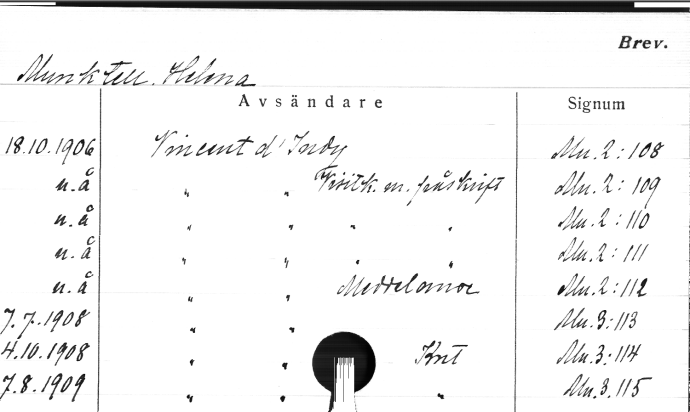 Brev.
Munktell. Helena
Avsändare Signum
18.10.1906 Vincent d'Indy Mu. 2:108
u.å " " Visitk. m. påskrift Mu. 2:109
u.å " " " " Mu. 2:110
u.å " " " " Mu. 2:111
u.å " " Meddelande Mu. 2:112
7.7.1908 " " Mu. 3:113
4.10.1908 " " Krt Mu. 3:114
7.8.1909 " " " Mu. 3.115